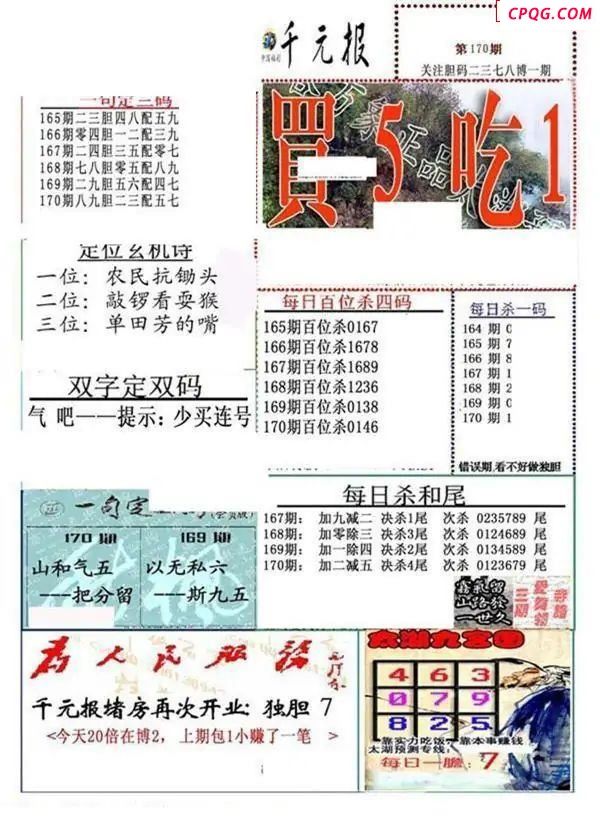 CPQG.COM
千元报
第170期
关注胆码二三七八博一期
一句定三码
165期二三胆四八配五九
166期零四胆一二配三九
167期二四胆三五配零七
168期七八胆零五配八九
169期二九胆五六配四七
170期八九胆二三配五七
買5吃1
定位玄机诗
一位：农民抗锄头
二位：敲锣看耍猴
三位：单田芳的嘴
双字定双码
气 吧——提示：少买连号
每日百位杀四码
165期百位杀0167
166期百位杀1678
167期百位杀1689
168期百位杀1236
169期百位杀0138
170期百位杀0146
每日杀一码
164 期 0
165 期 7
166 期 8
167 期 1
168 期 2
169 期 0
170 期 1
错误期,看不好做独胆
每日杀和尾
167期： 加九减二 决杀1尾 次杀 0235789 尾
168期： 加零除三 决杀3尾 次杀 0124689 尾
169期： 加一除四 决杀2尾 次杀 0134589 尾
170期： 加二减五 决杀4尾 次杀 0123679 尾
一句定
(会员版)
170 期
山和气五
---把分留
169 期
以无私六
---斯九五
为人民服务
千元报堵房再次开业: 独胆 7
<今天20倍在博2, 上期包1小赚了一笔 >
太湖九宫图
4 6 3
0 7 9
8 2 5
靠实力吃饭,靠本事赚钱
太湖预测专线:
每日一胆: 7